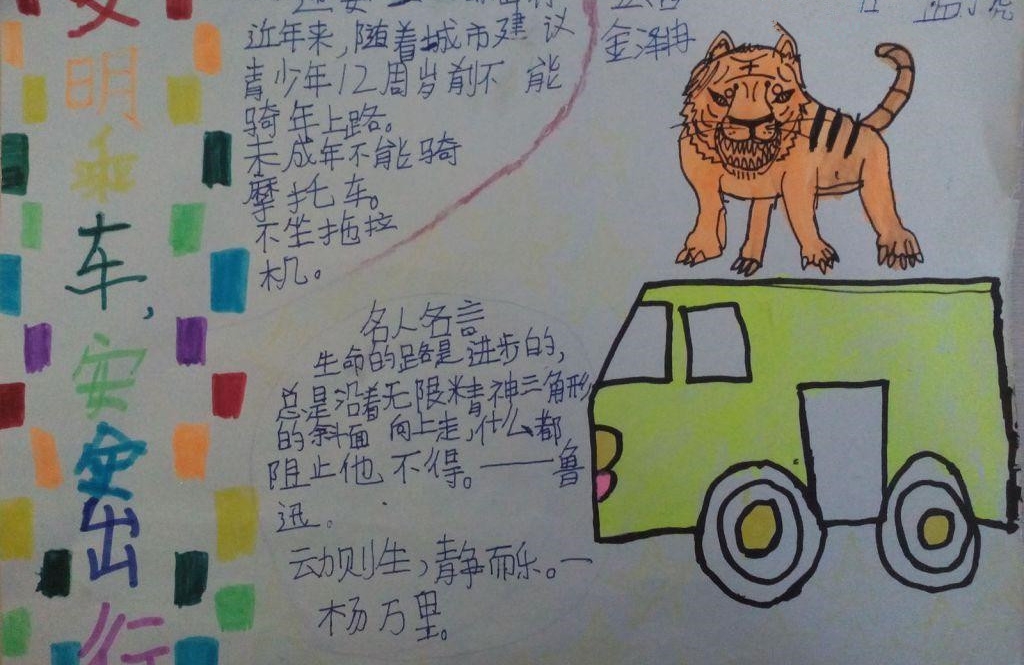 文明乘车，安全出行
近年来,随着城市建议
青少年12周岁前不能
骑年上路。
未成年不能骑
摩托车。
不坐拖拉
机。
名人名言
生命的路是进步的,
总是沿着无限精神三角形
的斜面向上走,什么都
阻止他不得。——鲁
迅。
动则生,静而乐。一
杨万里。